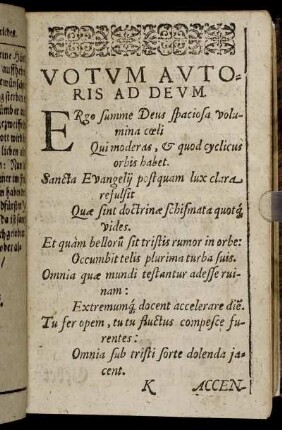 VOTVM AVTO-
RIS AD DEVM.
ERgo summe Deus spaciosa vola-
mina cœli
Qui moderas, & quod cyclicus
orbis habet.
Sancta Evangelij postquam lux clara
refulsit
Quæ sint doctrinæ schismata quotq́,
vides.
Et quàm bellorũ sit tristis rumor in orbe:
Occumbit telis plurima turba suis.
Omnia quæ mundi testantur adesse rui-
nam:
Extremumq́, docent accelerare diẽ.
Tu fer opem, tu tu fluctus compesce fu-
rentes:
Omnia sub tristi sorte dolenda ja-
cent.
K ACCEN-